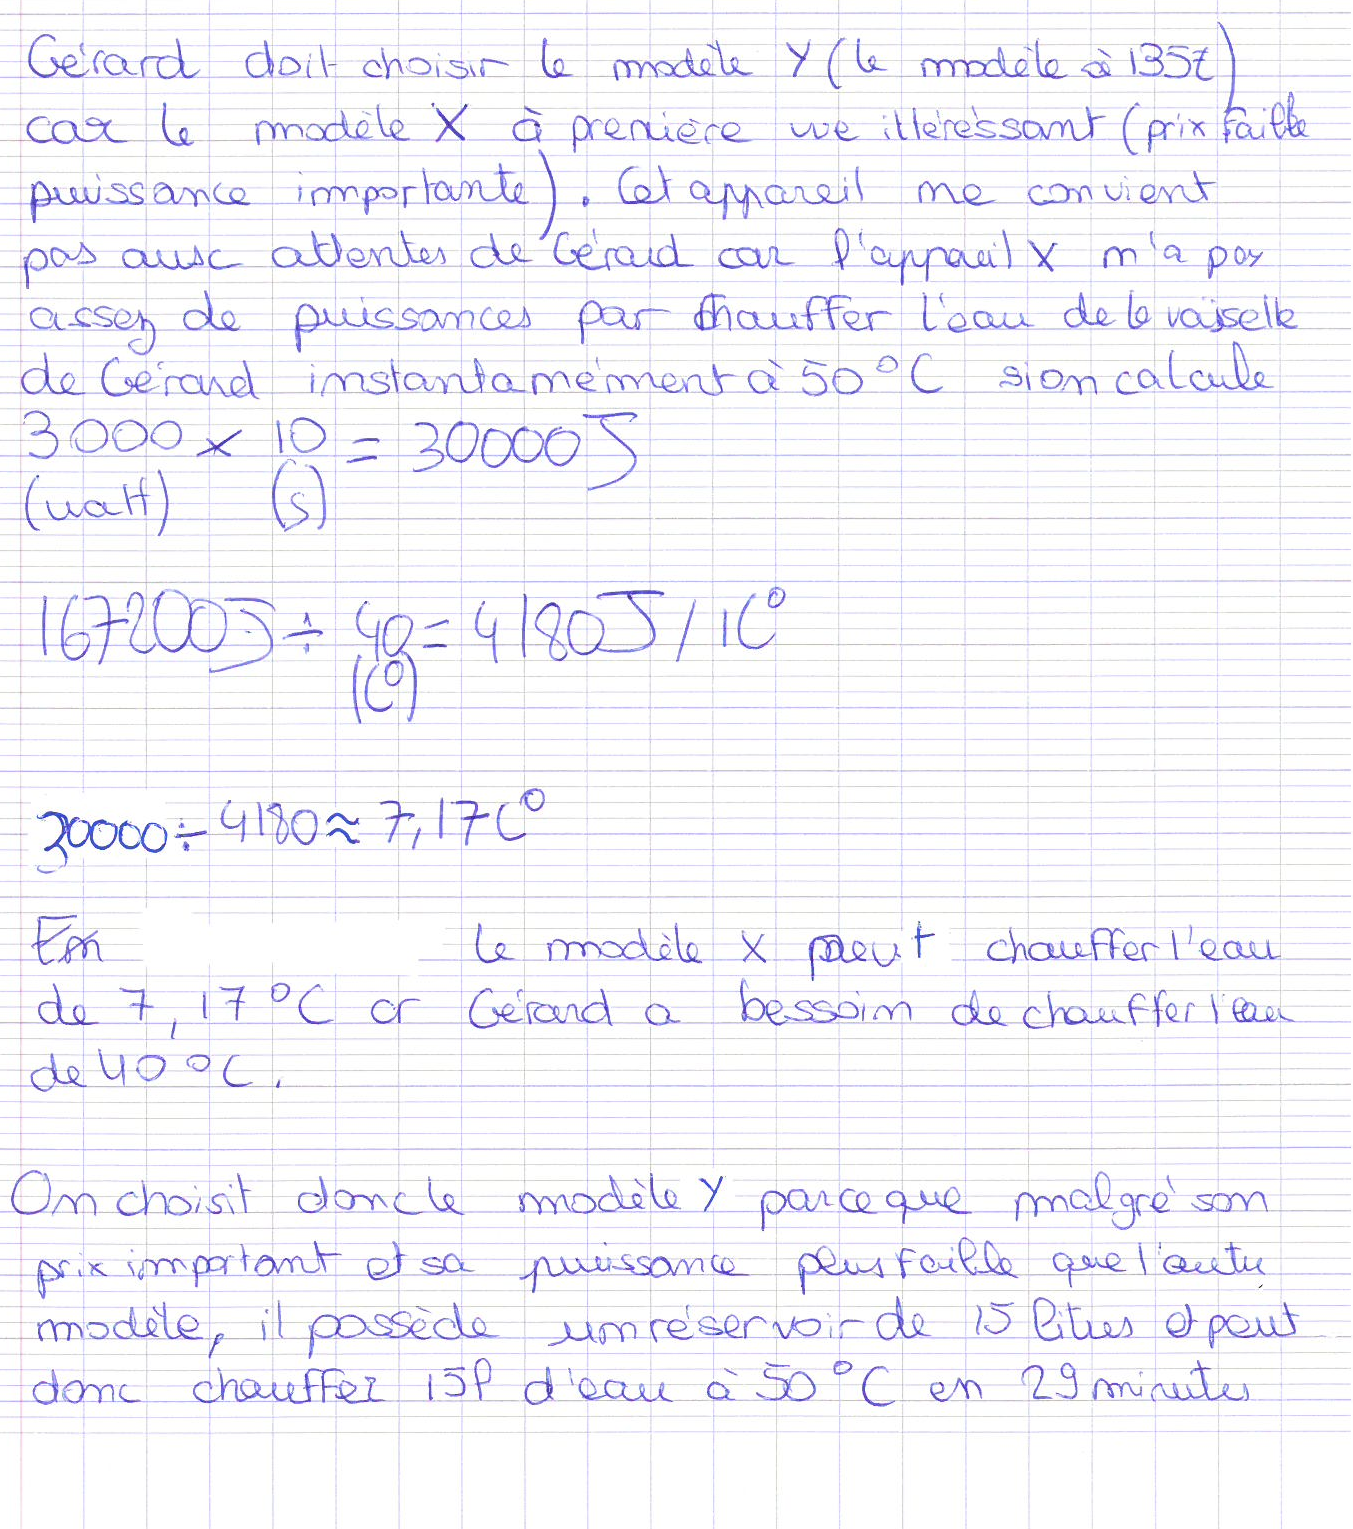 Gérard doit choisir le modèle Y (le modèle à 135€)
car le modèle X à première vue intéréssant (prix faible
puissance importante). Cet appareil ne convient
pas aux attentes de Gérard car l'appareil X n'a pas
assez de puissances par chauffer l'eau de le vaisselle
de Gérard instantanément à 50°C si on calcule
3000 x 10 = 30000J
(watt) (s)
167200J ÷ 40 = 4180J / 1C°
(C°)
30000 ÷ 4180 ≈ 7,17C°
En le modèle X peut chauffer l'eau
de 7,17°C or Gérard a bessoin de chauffer l'eau
de 40°C.
On choisit donc le modèle Y parceque malgré son
prix important et sa puissance plus faible que l'autre
modèle, il possède un réservoir de 15 litres et peut
donc chauffer 15l d'eau à 50°C en 29 minutes